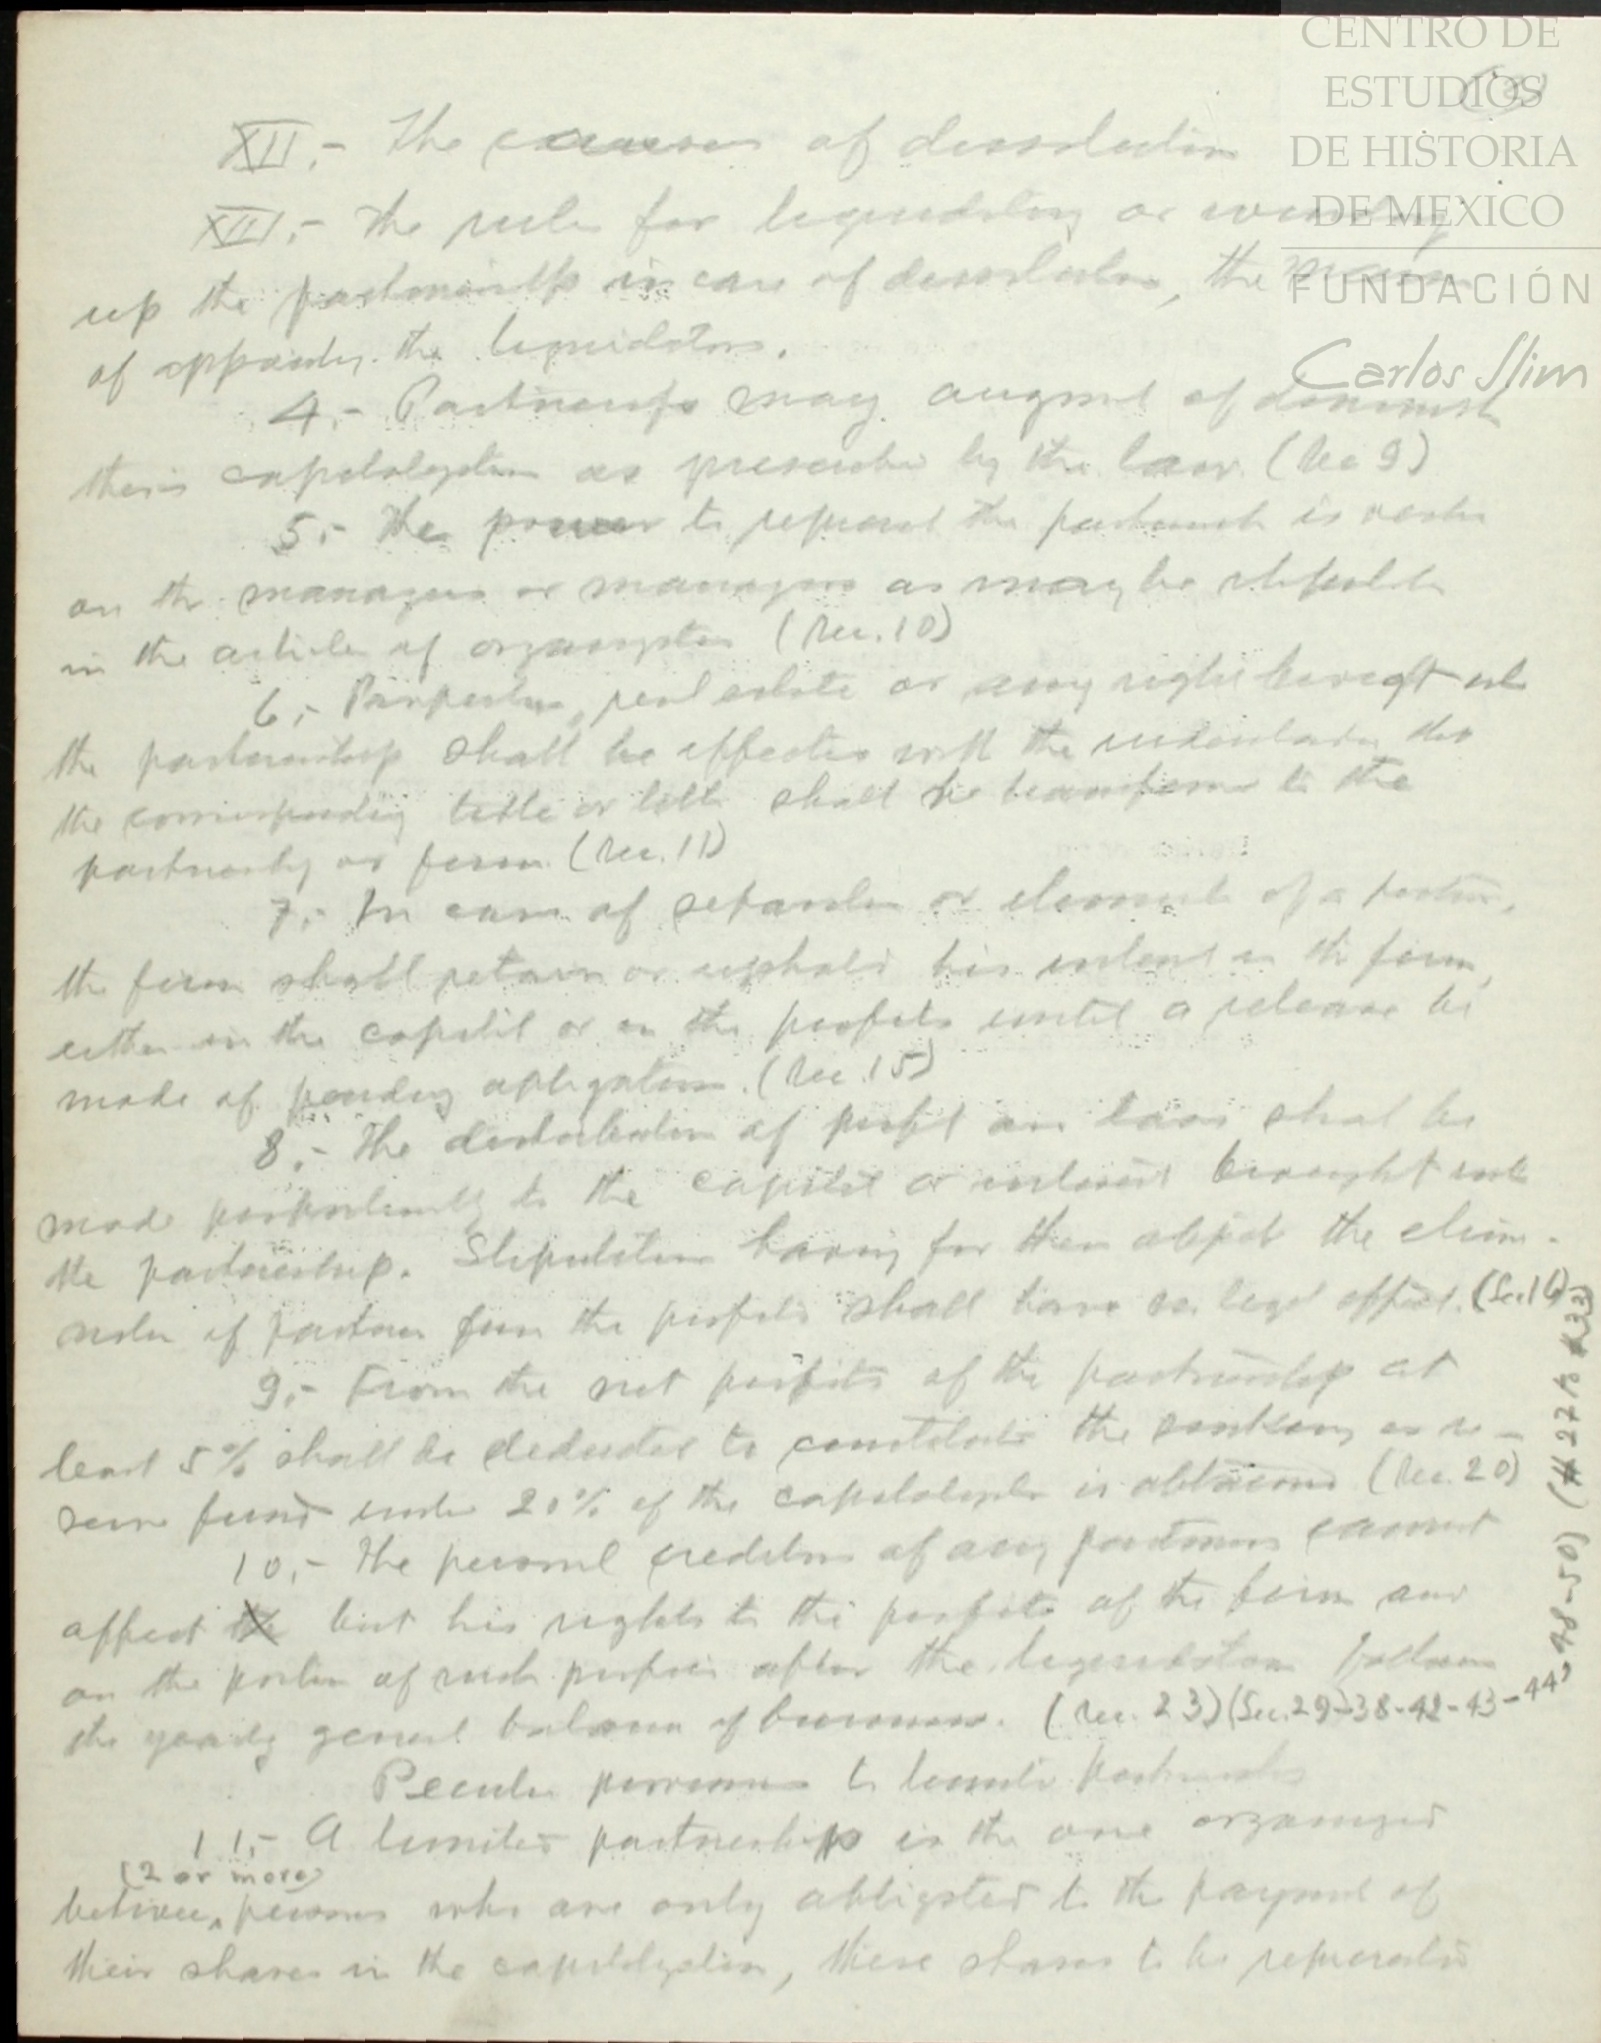 CENTRO DE
ESTUDIOS
DE HISTORIA
DE MEXICO
FUNDACIÓN
Carlos Slim
XII.- The causes of dissolution
XIII.- The rules for liquidating or winding
up the partnership in case of dissolution, the
of appointing the liquidators.
4.- Partnerships may augment of diminish
their capitalization as prescribed by the law (Sec 9)
5.- The power to represent the partnership is vested
on the managers or managers as may be stipulated
in the articles of organization (Sec. 10)
6.- Properties, real estate or any right brought into
the partnership shall be effected with the understanding that
the corresponding title or titles shall be transferred to the
partnership or firm (Sec. 11)
7.- In case of separation or of a partner,
the firm shall retain or uphold his interest in the firm,
either in the capital or in the profits until a release be
made of pending obligations. (Sec. 15)
8.- The distribution of profit and loss shall be
made proportionately to the capital or interest brought into
the partnership. Stipulations having for their object the elimi-
nation of partners from the profits shall have no legal effect. (Sec. 16)
9.- From the net profits of the partnership at
least 5% shall be deducted to constitute the sinking or re-
serve fund until 20% of the capitalization is obtained (Sec. 20)
10.- The personal creditors of any partners cannot
affect but his rights to the profits of the firm and
on the portion of such profits after the liquidation follows
the yearly general balance of business. (Sec. 23) (Sec. 29-38-42-43-44, 48-50) (# 227 to 233)
Peculiar to limited partnerships
11.- A limited partnership is the one organized
(2 or more)
between persons who are only obligated to the payment of
their shares in the capitalization, these shares to be represented